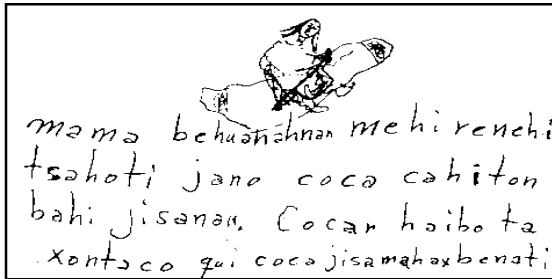 mama behuanahnan mehi renehi
tsahoti jano coca cahiton
bahi jisanan. Cocan haibo ta
xontaco qui coca jisamahaxbenati